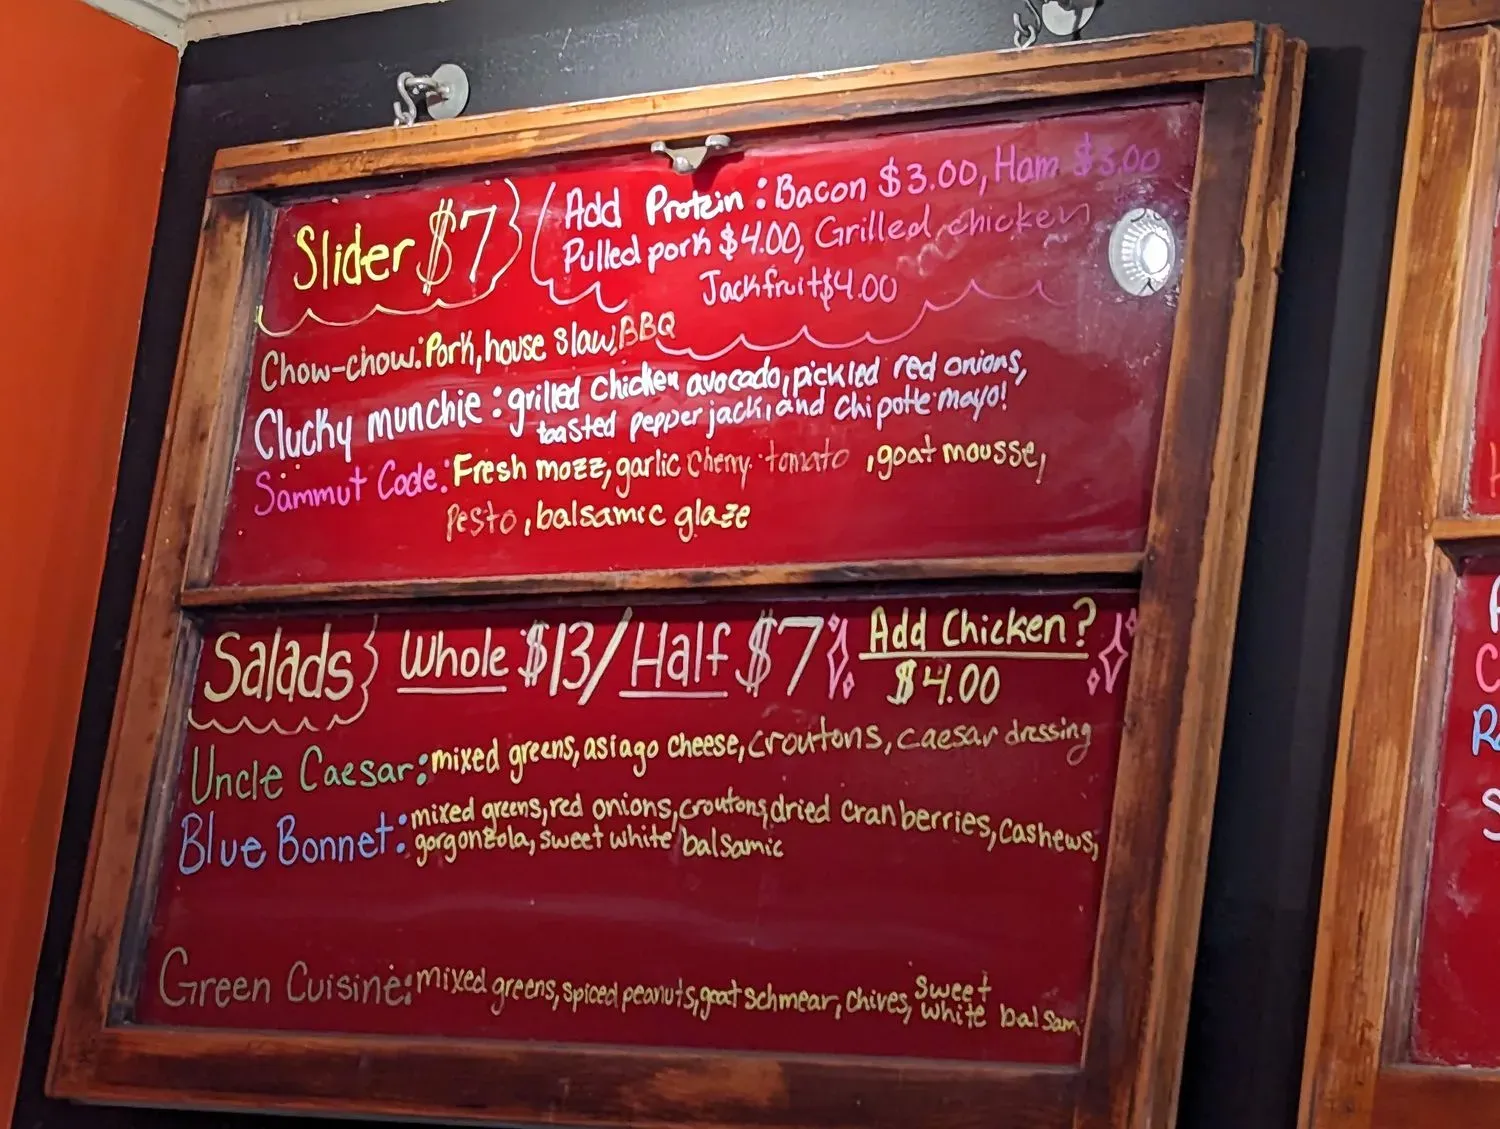 Slider $7
Add Protein: Bacon $3.00, Ham $3.00
Pulled pork $4.00, Grilled chicken
Jackfruit $4.00
Chow-chow: Pork, house slaw, BBQ
Clucky munchie: grilled chicken avocado, pickled red onions,
toasted pepper jack, and chipotle mayo!
Sammut Code: Fresh mozz, garlic cherry tomato, goat mousse,
Pesto, balsamic glaze
Salads Whole $13/Half $7
Add Chicken?
$4.00
Uncle Caesar: mixed greens, asiago cheese, croutons, caesar dressing
Blue Bonnet: mixed greens, red onions, croutons, dried cranberries, cashews,
gorgonzola, sweet white balsamic
Green Cuisine: mixed greens, spiced peanuts, goat schmear, chives, sweet
white balsam